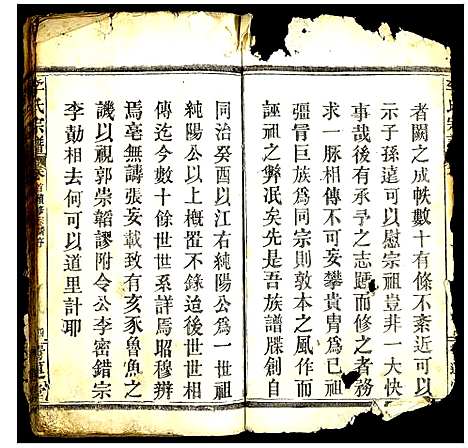 者闕之成帙數十有條不紊近可以
示子孫遠可以慰宗祖豈非一大快
事哉後有承予之志踵而修之者務
求一脈相傳不可妄攀貴胄爲已祖
彊冒巨族爲同宗則敦本之風作而
誣祖之弊泯矣先是吾族譜牒創自
同治癸酉以江右純陽公爲一世祖
純陽公以上槪置不錄迨後世世相
傳迄今數十餘世世系詳焉昭穆辨
焉毫無譸張妄載致有亥豕魯魚之
譏以視郭崇韜謬附令公李密錯宗
李勣相去何可以道里計耶
李氏宗譜